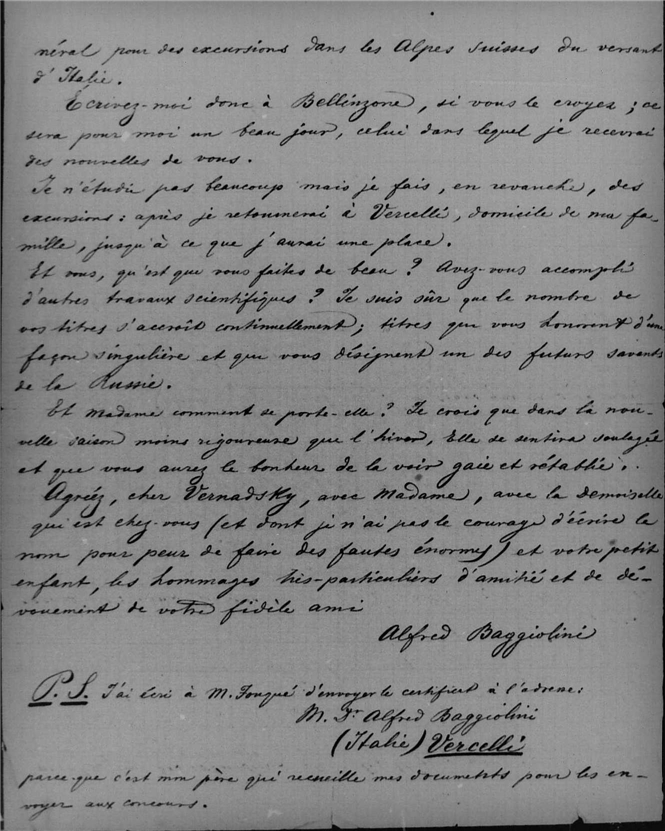 néral pour des excursions dans les Alpes Suisses du versant
d'Italie.
Écrivez-moi donc à Bellinzone, si vous le croyez; ce
sera pour moi un beau jour, celui dans lequel je recevrai
des nouvelles de vous.
Je n'étudie pas beaucoup mais je fais, en revanche, des
excursions: après je retournerai à Vercelli, domicile de ma fa-
mille, jusqu'à ce que j'aurai une place.
Et vous, qu'est que vous faites de beau? Avez-vous accompli
d'autres travaux scientifiques? Je suis sûr que le nombre de
vos titres s'accroît continuellement; titres que vous honorent d'une
façon singulière et que vous désignent un des futurs savants
de la Russie.
Et Madame comment se porte-elle? Je crois que dans la nou-
velle saison moins rigoureuse que l'hiver, Elle se sentira soulagée
et que vous aurez le bonheur de la voir gaie et rétablie.
Agréez, cher Vernadsky, avec Madame, avec la demoiselle
qui est chez-vous (et dont je n'ai pas le courage d'écrire le
nom pour peur de faire des fautes énormes) et votre petit
enfant, les hommages très-particuliers d'amitié et de dé-
vouement de votre fidèle ami
Alfred Baggiolini
P.S. J'ai écri à M. Fouqué d'envoyer le certificat à l'adresse:
M. Dr Alfred Baggiolini
(Italie) Vercelli
parce-que c'est mon père qui recueille mes documents pour les en-
voyer aux concours.